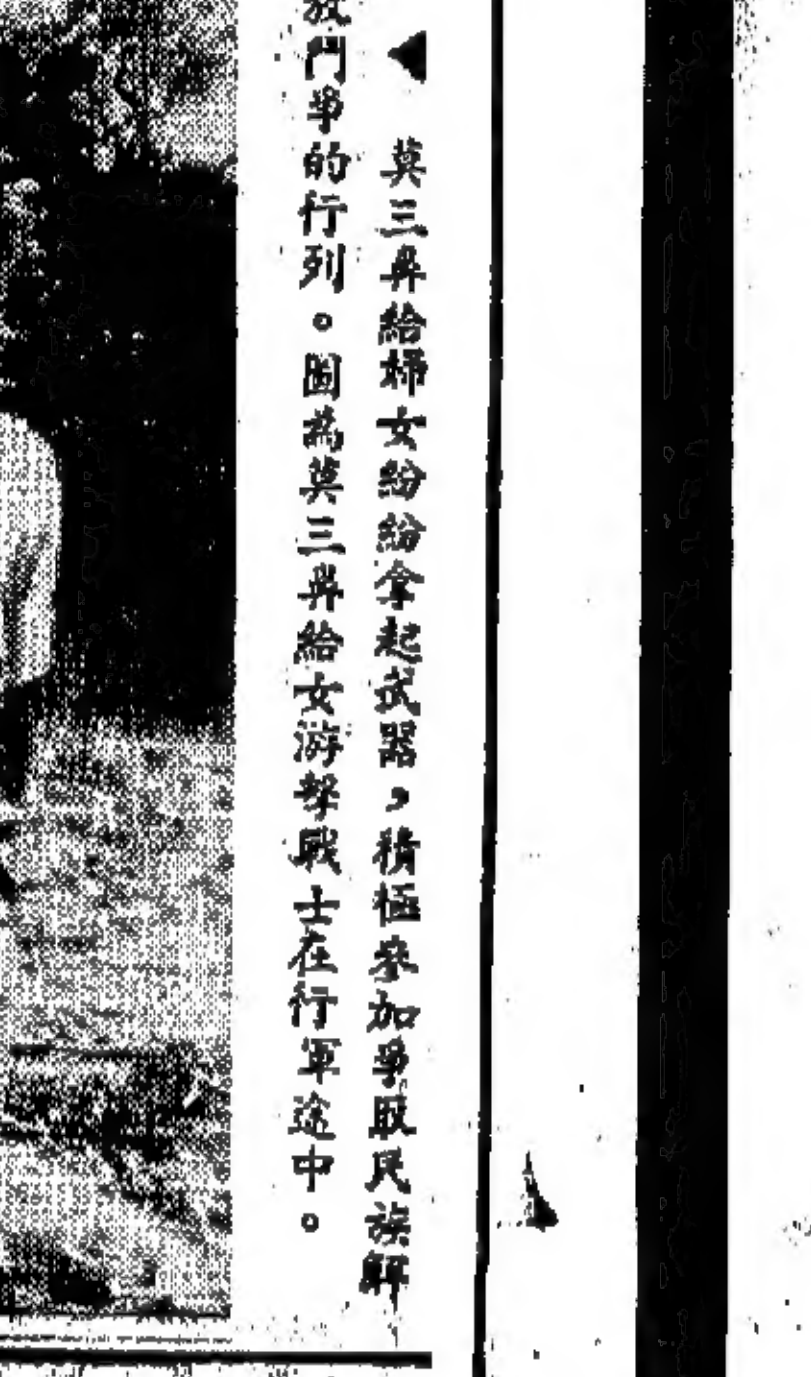 ◀ 莫三鼻給婦女紛紛拿起武器，積極參加爭取民族解
放鬥爭的行列。圖為莫三鼻給女游擊戰士在行軍途中。